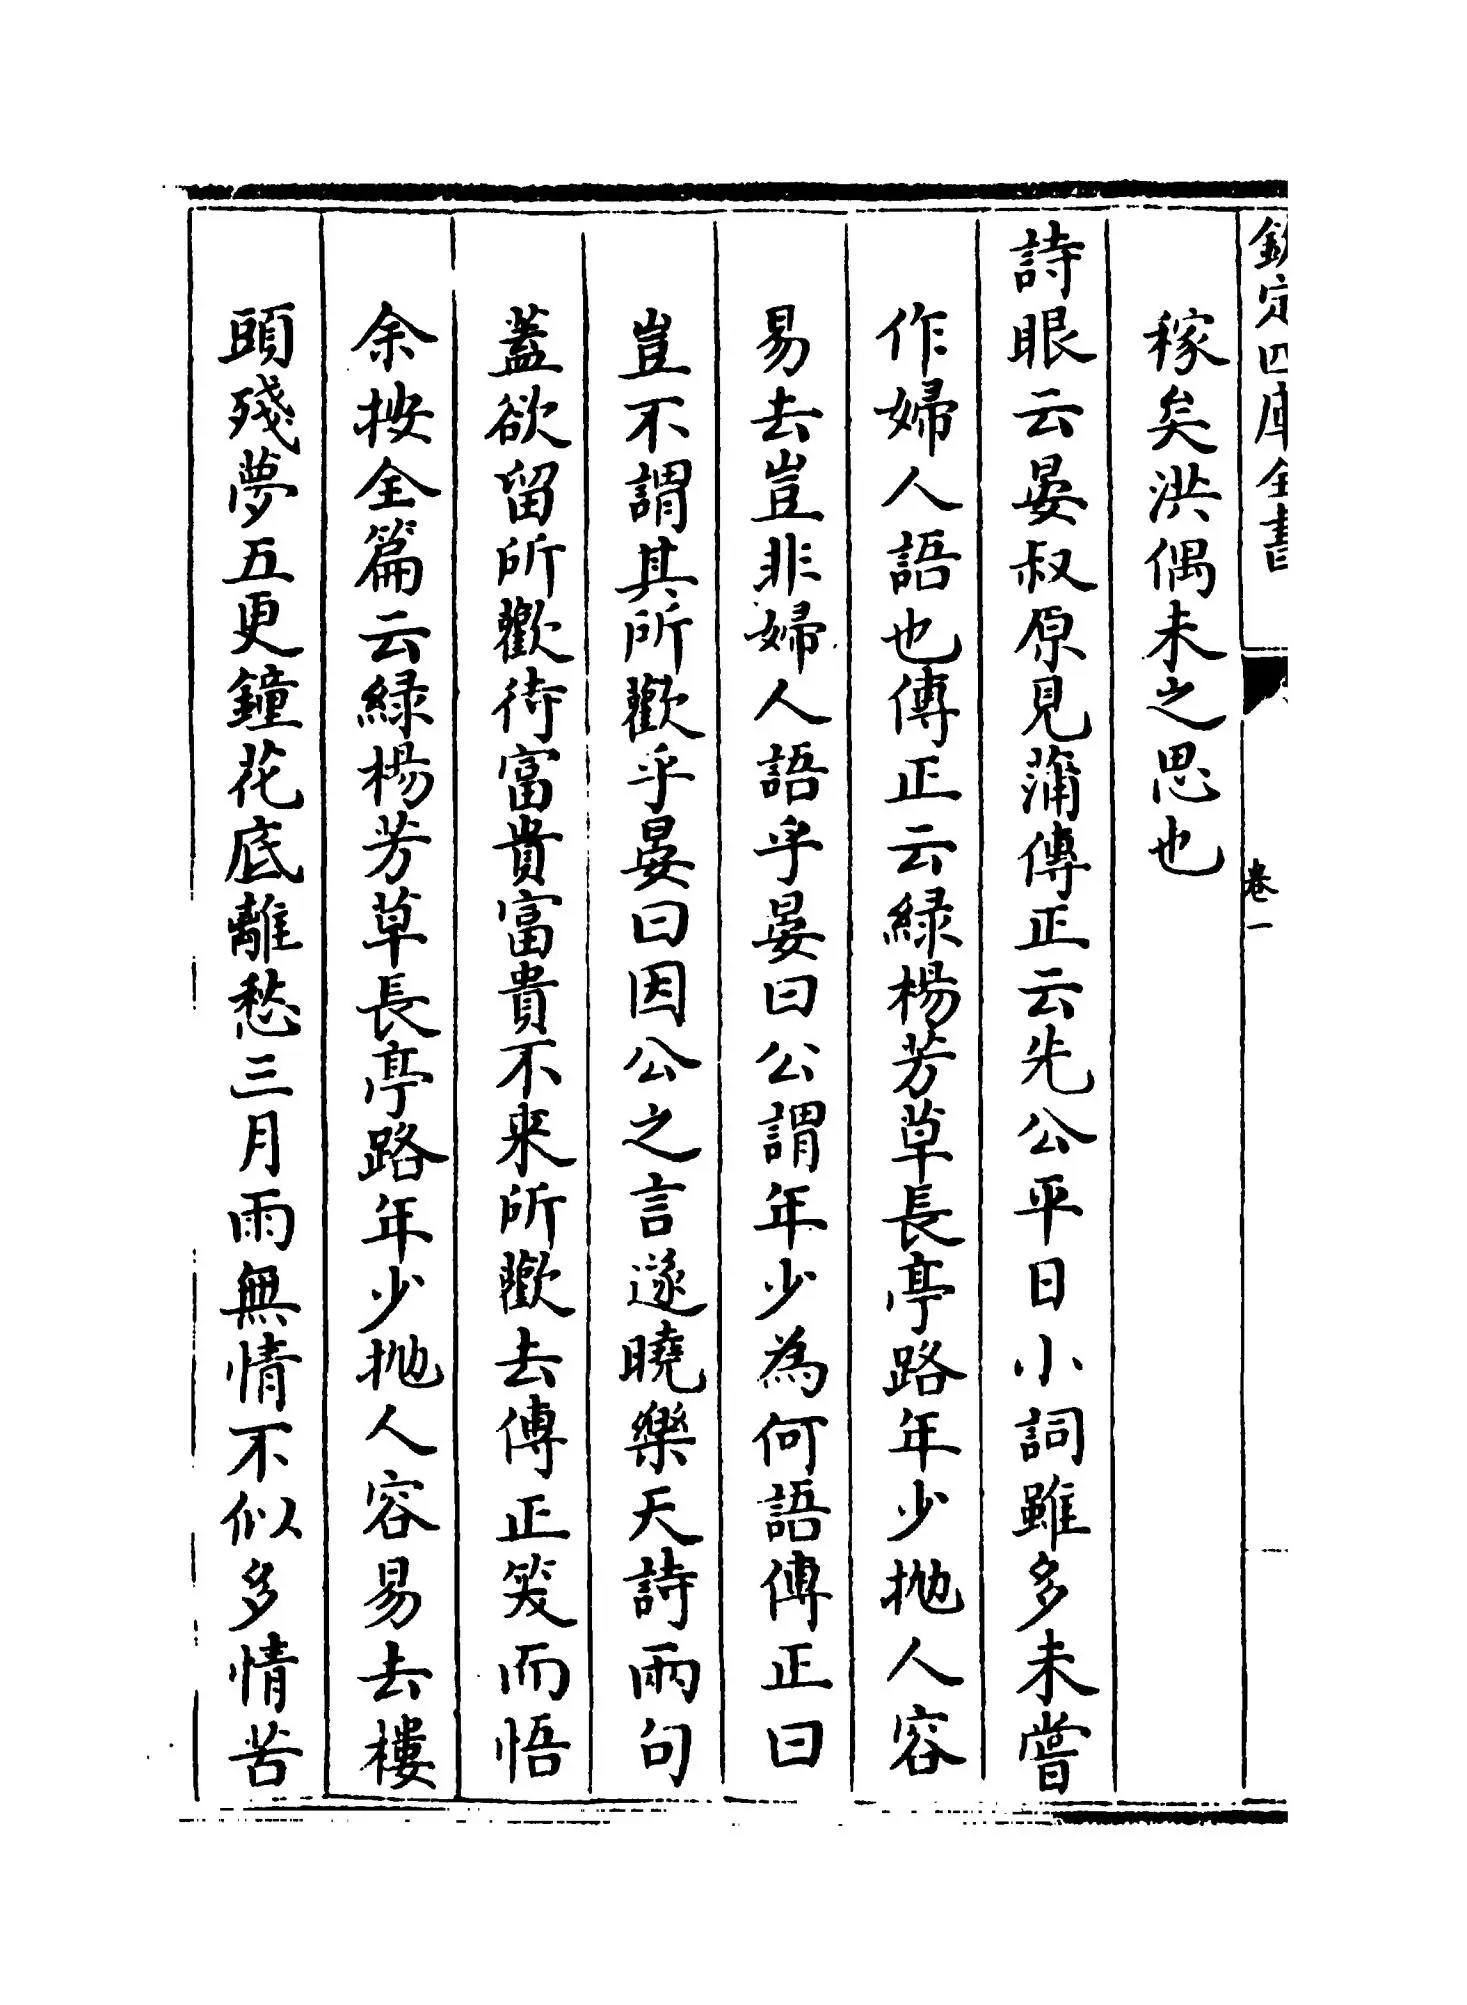 欽定四庫全書
卷一
稼矣洪偶未之思也
詩眼云晏叔原見蒲傳正云先公平日小詞雖多未嘗
作婦人語也傳正云緑楊芳草長亭路年少抛人容
易去豈非婦人語乎晏曰公謂年少為何語傳正曰
豈不謂其所歡乎晏曰因公之言遂曉樂天詩兩句
蓋欲留所歡待富貴富貴不来所歡去傳正笑而悟
余按全篇云緑楊芳草長亭路年少抛人容易去樓
頭殘夢五更鐘花底離愁三月雨無情不似多情苦